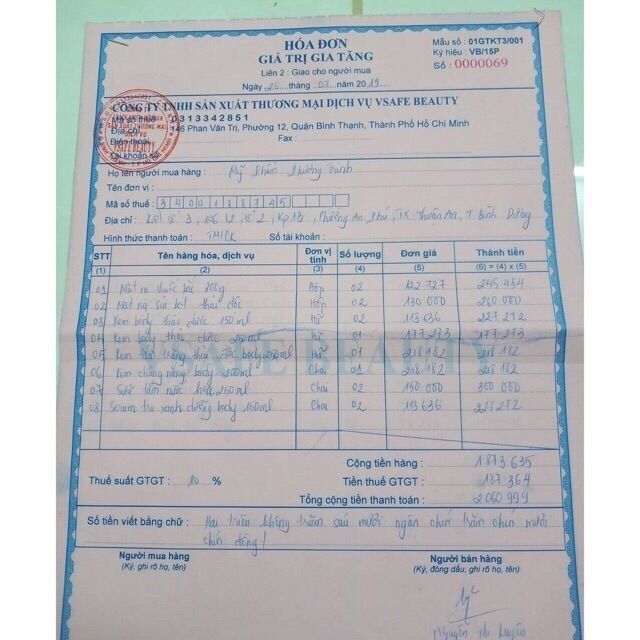 HÓA ĐƠN
GIÁ TRỊ GIA TĂNG
Liên 2 : Giao cho người mua
Ngày 26 tháng 07 năm 2019
Mẫu số : 01GTKT3/001
Ký hiệu : VB/15P
Số : 0000069
CÔNG TY TNHH SẢN XUẤT THƯƠNG MẠI DỊCH VỤ VSAFE BEAUTY
Mã số thuế 0313342851
Địa chỉ 146 Phan Văn Trị, Phường 12, Quận Bình Thạnh, Thành Phố Hồ Chí Minh
Điện thoại Fax :
Tài khoản số
Họ tên người mua hàng : Mỹ Phẩm
Tên đơn vị :
Mã số thuế : 3400188745
Địa chỉ : Kp 13 Phường An Phú, TX Thuận An, T. Bình
Hình thức thanh toán : TM/CK Số tài khoản :
STT Tên hàng hóa, dịch vụ Đơn vị tính Số lượng Đơn giá Thành tiền
(1) (2) (3) (4) (5) (6) = (4) x (5)
01 Mặt nạ thuốc bắc 300g Hộp 02 122 727 245 454
02 Mặt nạ Hộp 02 130 000 260 000
03 Kem body thảo dược 150ml Hũ 02 113 636 227 272
04 Kem body thảo dược 250ml Hũ 01 177 273 177 273
05 Kem tắm trắng thảo dược body 250ml Hũ 01 218 182 218 182
06 Kem chống nắng body 200ml Chai 01 218 182 218 182
07 Sữa tắm nước hoa 250ml Chai 02 150 000 300 000
08 Serum trà xanh dưỡng body 150ml Chai 02 113 636 227 272
VSAFE BEAUTY
Cộng tiền hàng : 1 873 635
Thuế suất GTGT : 10 % Tiền thuế GTGT : 187 364
Tổng cộng tiền thanh toán : 2 060 999
Số tiền viết bằng chữ : Hai triệu không trăm sáu mươi ngàn chín trăm chín mươi
chín đồng
Người mua hàng Người bán hàng
(Ký, ghi rõ họ, tên) (Ký, đóng dấu, ghi rõ họ, tên)
Nguyễn Thị